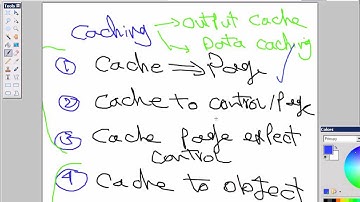 Tools
Caching → output cache
→ Data caching
① Cache ⇒ Page
② Cache to control/Page
③ Cache page effect
control
④ Cache to object
Colors